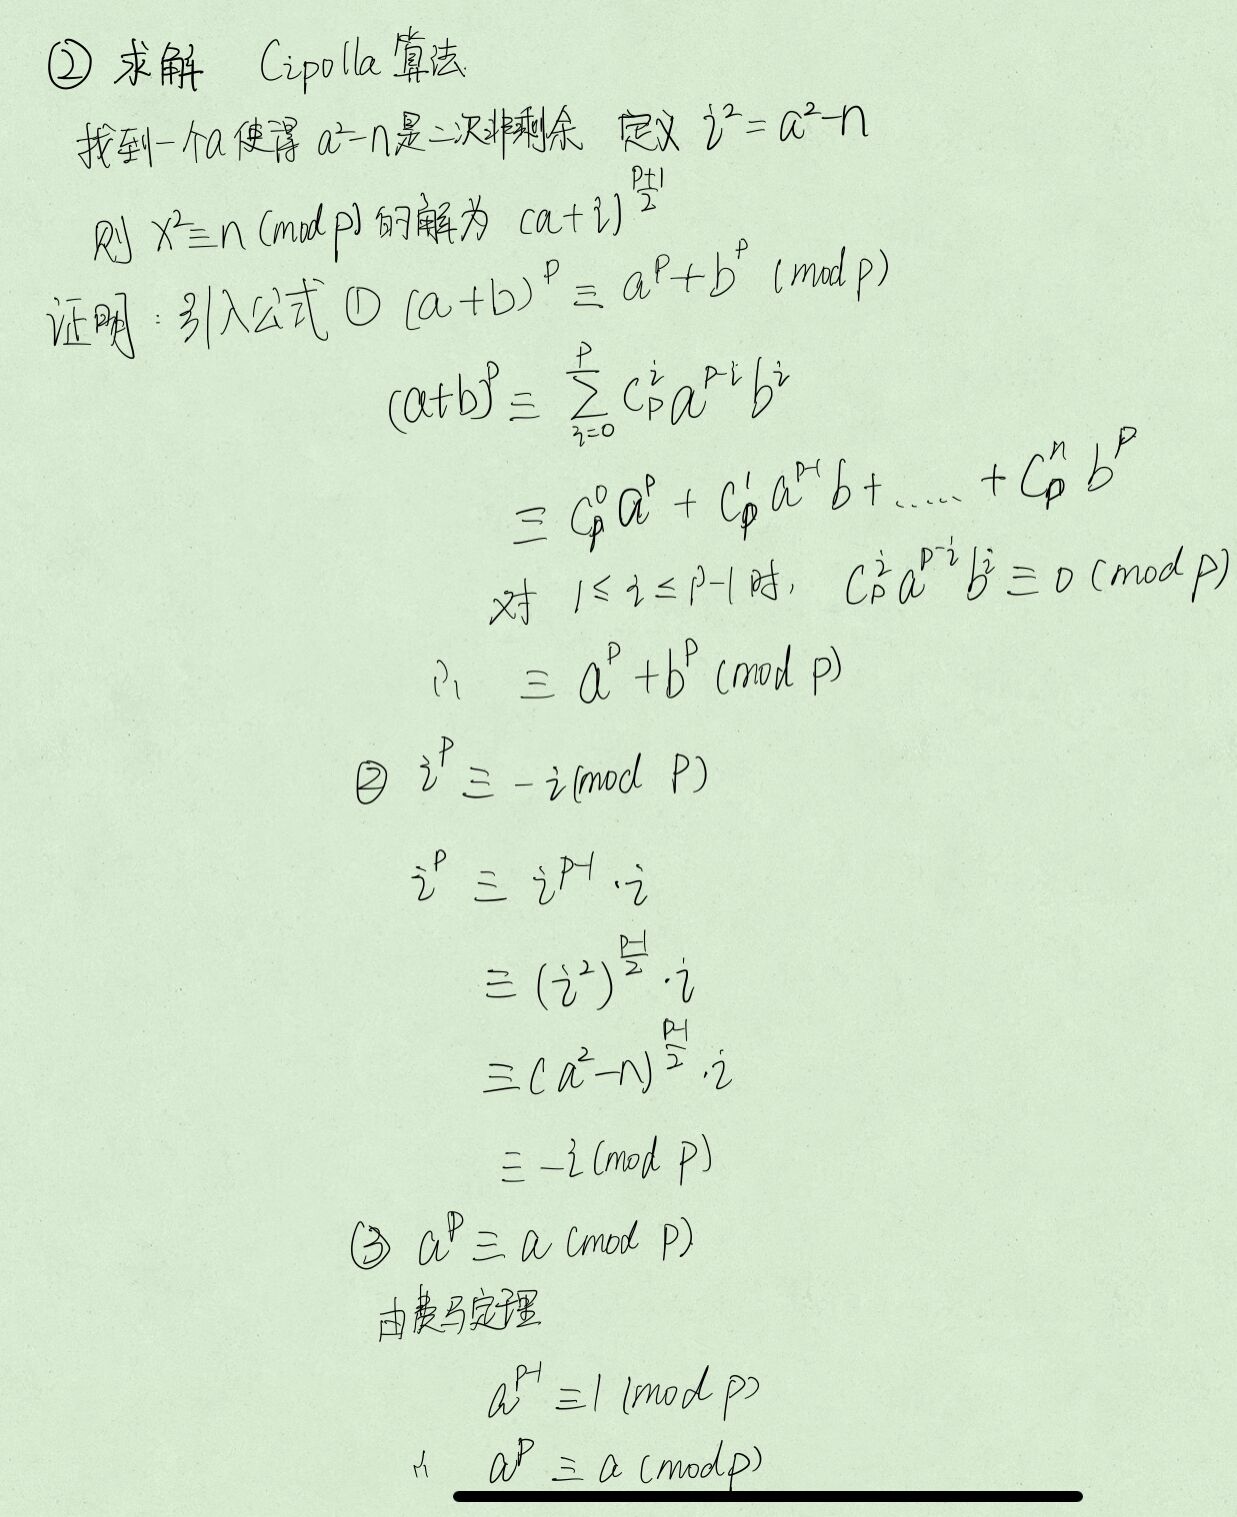 ② 求解 Cipolla 算法
找到一个a使得 a²-n是二次非剩余 定义 i² = a²-n
则 x²≡n (mod p) 的解为 (a+i)^((p+1)/2)
证明：引入公式 ① (a+b)^p ≡ a^p + b^p (mod p)
(a+b)^p ≡ ∑_{i=0}^{p} C_p^i a^{p-i} b^i
≡ C_p^0 a^p + C_p^1 a^{p-1} b + ...... + C_p^n b^p
对 1 ≤ i ≤ p-1 时, C_p^i a^{p-i} b^i ≡ 0 (mod p)
∴ ≡ a^p + b^p (mod p)
② i^p ≡ -i (mod p)
i^p ≡ i^{p-1} · i
≡ (i²)^((p-1)/2) · i
≡ (a²-n)^((p-1)/2) · i
≡ -i (mod p)
③ a^p ≡ a (mod p)
由费马定理
a^{p-1} ≡ 1 (mod p)
∴ a^p ≡ a (mod p)